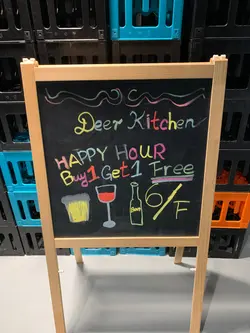 Deer Kitchen
HAPPY HOUR
Buy 1 Get 1 Free
6/F